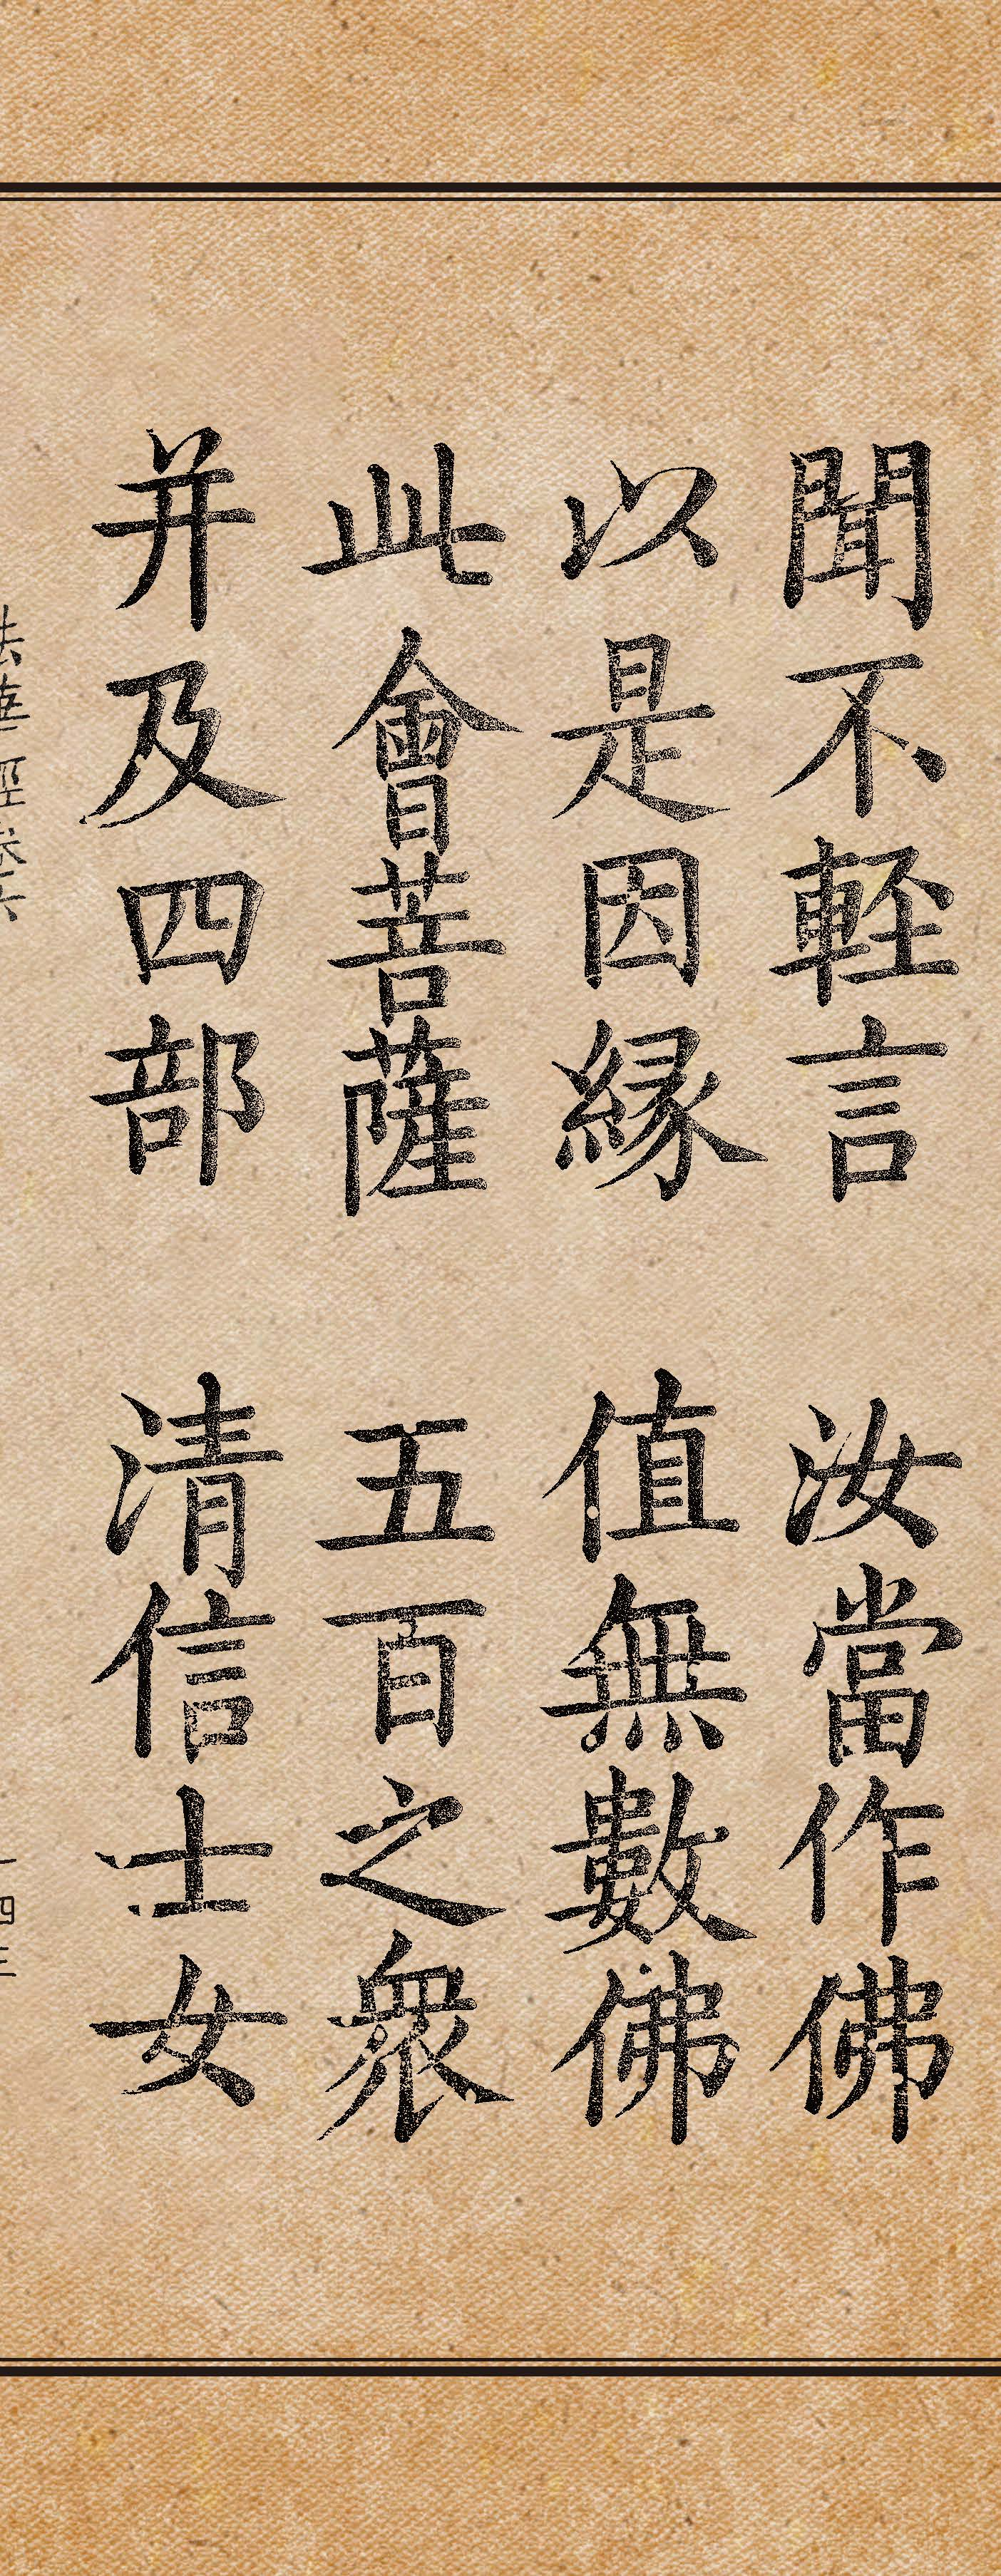 聞不軽言 汝當作佛
以是因縁 值無數佛
此會菩薩 五百之衆
并及四部 清信士女
法華經卷六
一四三